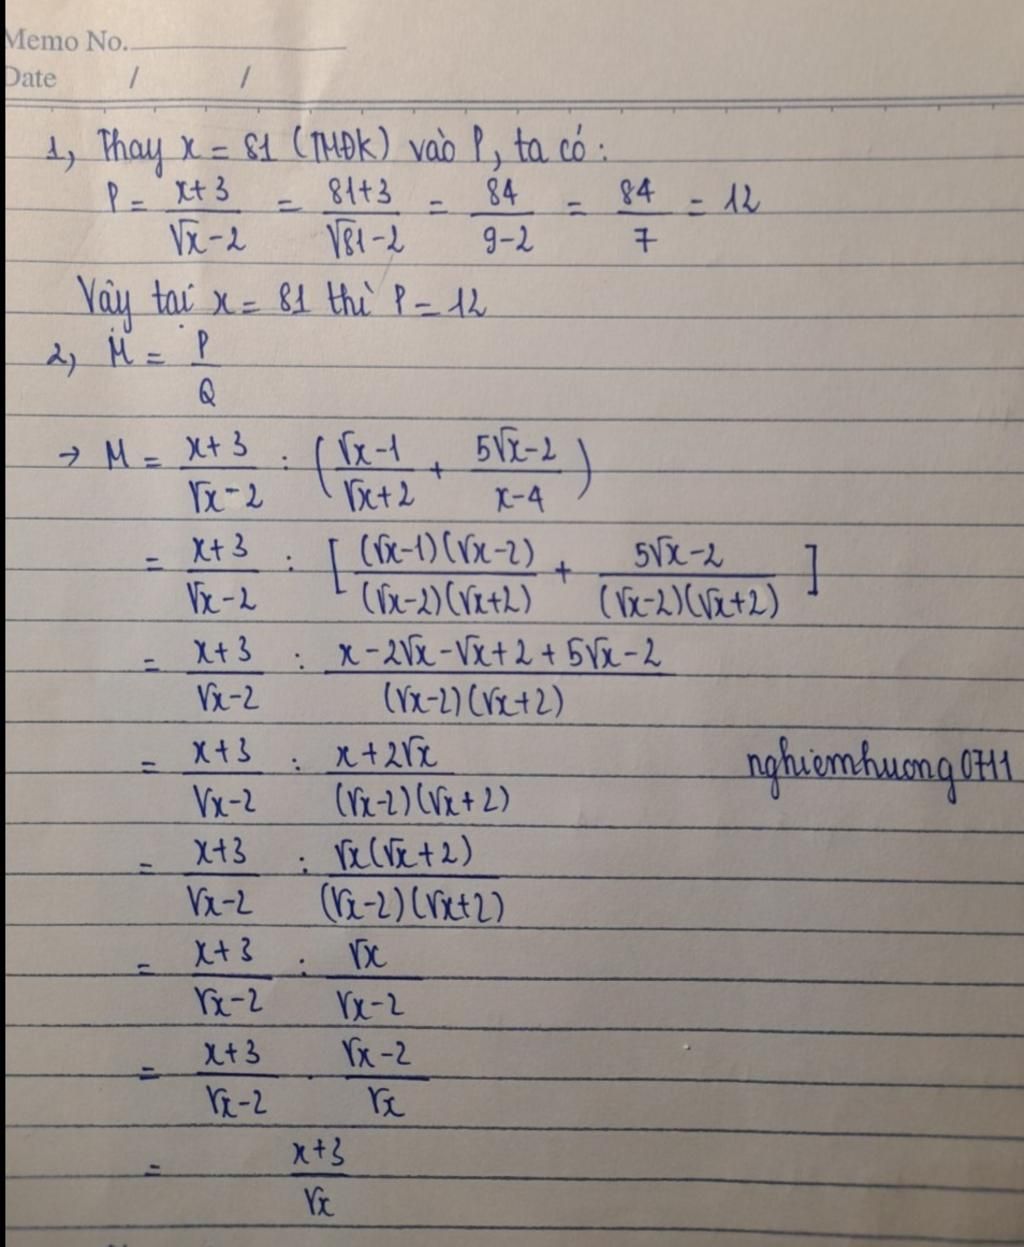 Memo No.
Date / /
1, Thay x = 81 (TMĐK) vào P, ta có :
P = \frac{x+3}{\sqrt{x}-2} = \frac{81+3}{\sqrt{81}-2} = \frac{84}{9-2} = \frac{84}{7} = 12
Vậy tại x = 81 thì P = 12
2, M = \frac{P}{Q}
→ M = \frac{x+3}{\sqrt{x}-2} : (\frac{\sqrt{x}-1}{\sqrt{x}+2} + \frac{5\sqrt{x}-2}{x-4})
= \frac{x+3}{\sqrt{x}-2} : [\frac{(\sqrt{x}-1)(\sqrt{x}-2)}{(\sqrt{x}-2)(\sqrt{x}+2)} + \frac{5\sqrt{x}-2}{(\sqrt{x}-2)(\sqrt{x}+2)}]
= \frac{x+3}{\sqrt{x}-2} : \frac{x-2\sqrt{x}-\sqrt{x}+2+5\sqrt{x}-2}{(\sqrt{x}-2)(\sqrt{x}+2)}
= \frac{x+3}{\sqrt{x}-2} : \frac{x+2\sqrt{x}}{(\sqrt{x}-2)(\sqrt{x}+2)}
nghiemhuong0711
= \frac{x+3}{\sqrt{x}-2} : \frac{\sqrt{x}(\sqrt{x}+2)}{(\sqrt{x}-2)(\sqrt{x}+2)}
= \frac{x+3}{\sqrt{x}-2} : \frac{\sqrt{x}}{\sqrt{x}-2}
= \frac{x+3}{\sqrt{x}-2} . \frac{\sqrt{x}-2}{\sqrt{x}}
= \frac{x+3}{\sqrt{x}}